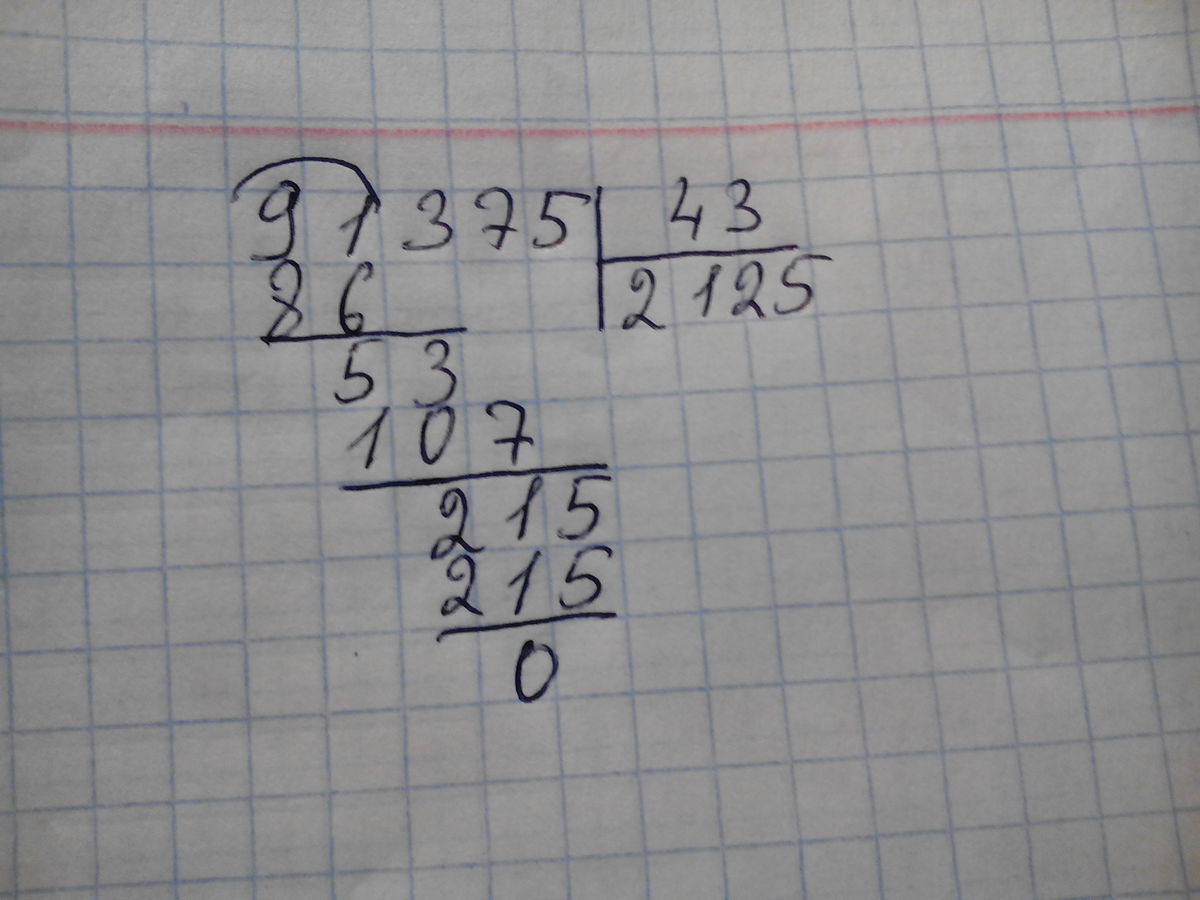 91375 43
86 2125
53
107
215
215
0